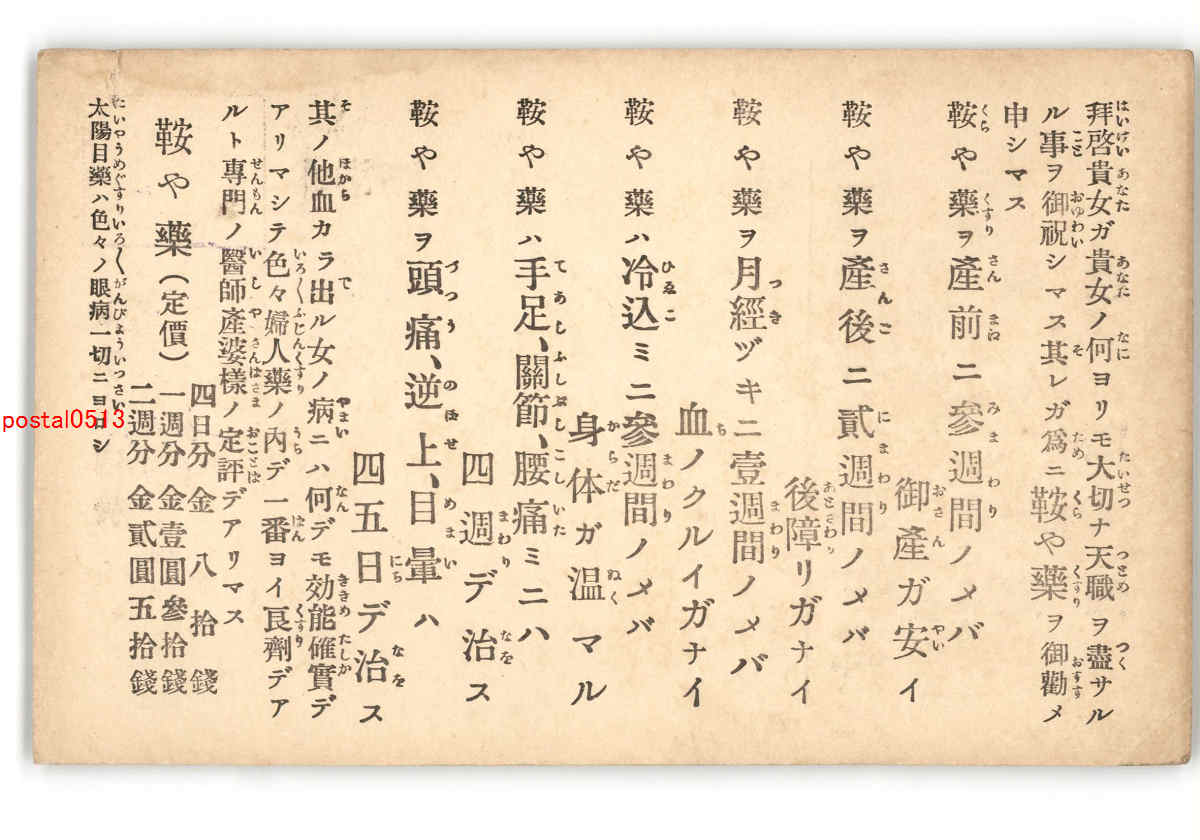 拜啓貴女ガ貴女ノ何ヨリモ大切ナ天職ヲ盡サル
ル事ヲ御祝シマス其レガ爲ニ鞍や藥ヲ御勸メ
申シマス
鞍や藥ヲ產前ニ參週間ノメバ
御產ガ安イ
鞍や藥ヲ產後ニ貳週間ノメバ
後障リガナイ
鞍や藥ヲ月經ヅキニ壹週間ノメバ
血ノクルイガナイ
鞍や藥ハ冷込ミニ參週間ノメバ
身体ガ温マル
鞍や藥ハ手足、關節、腰痛ミニハ
四週デ治ス
鞍や藥ヲ頭痛、逆上、目暈ハ
四五日デ治ス
其ノ他血カラ出ル女ノ病ニハ何デモ効能確實デ
アリマシテ色々婦人藥ノ內デ一番ヨイ良劑デア
ルト專門ノ醫師產婆樣ノ定評デアリマス
鞍や藥(定價)
四日分 金八拾錢
一週分 金壹圓參拾錢
二週分 金貳圓五拾錢
太陽目藥ハ色々ノ眼病一切ニヨロシ
postal0513